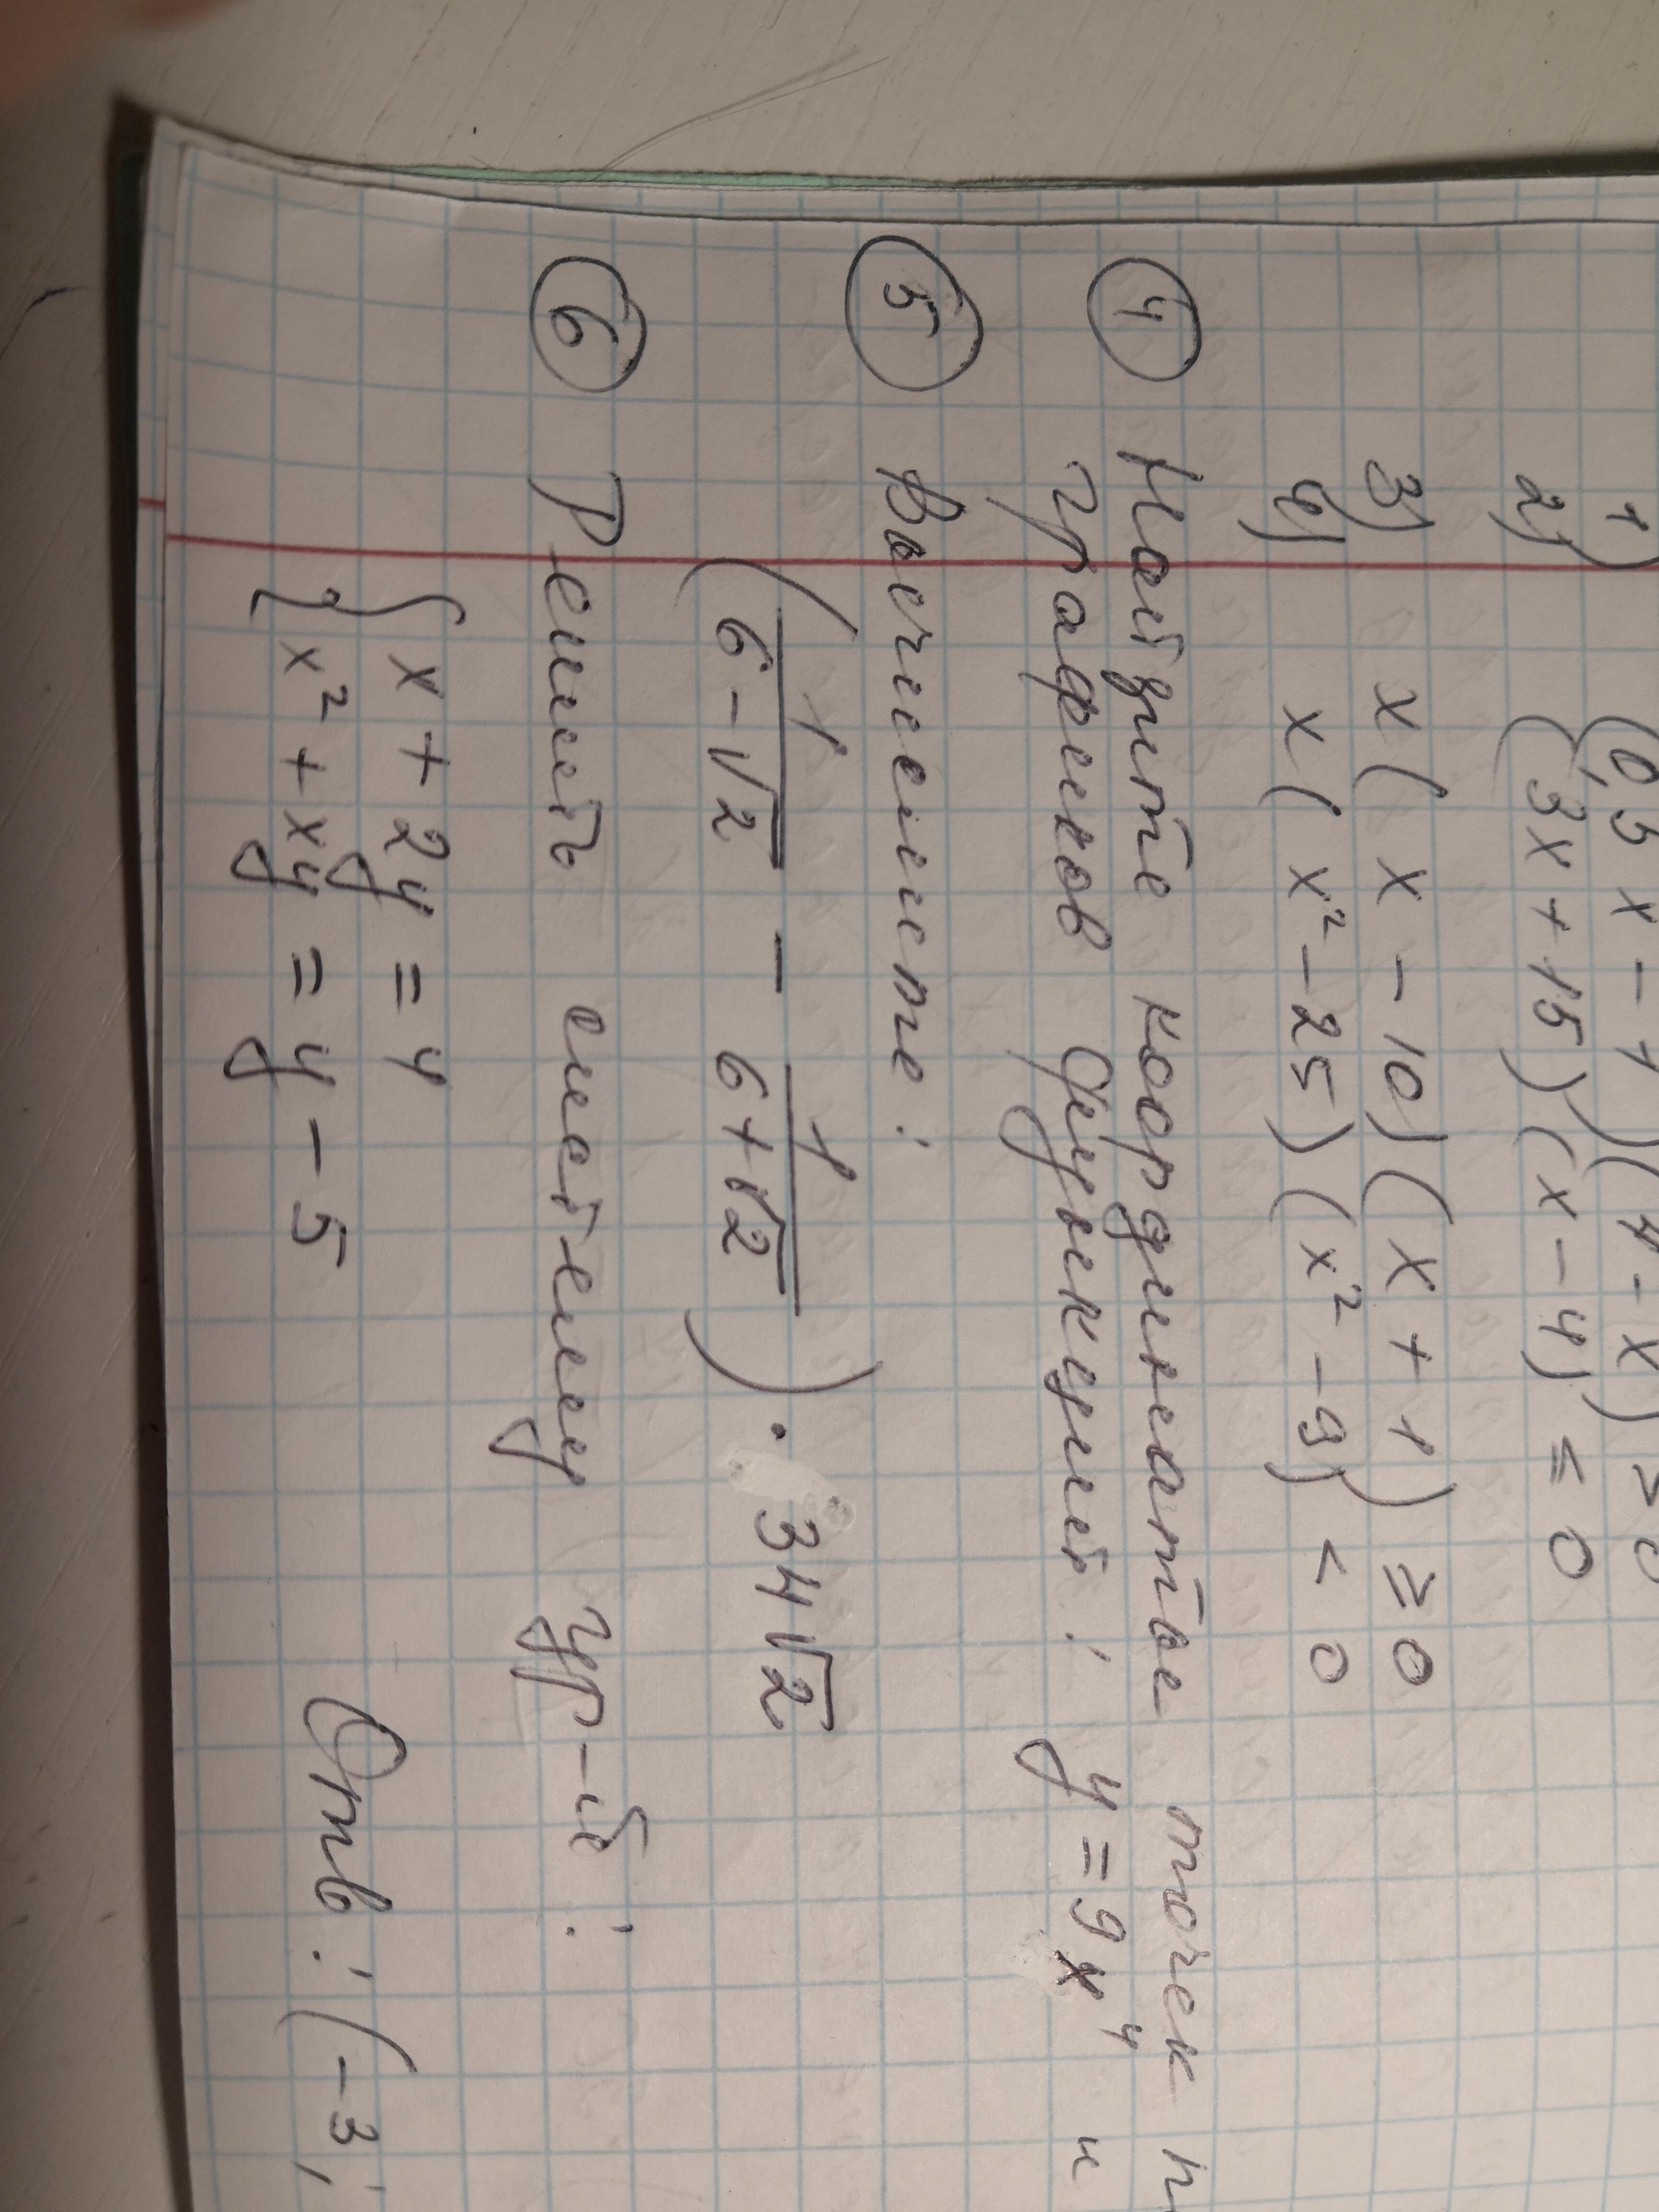 1) (0,5x - 1)(4 - x) > 0
2) (3x + 15)(x - 4) ≤ 0
3) x(x - 10)(x + 1) ≥ 0
4) x(x² - 25)(x² - 9) < 0
④ Найдите координаты точек п
графиков функций: y = 9x⁴ и
⑤ Вычислите:
(1/(6-√2) - 1/(6+√2)) · 34√2
⑥ Решить систему ур-й:
{ x + 2y = 4
x² + xy = y - 5 Отв: (-3;